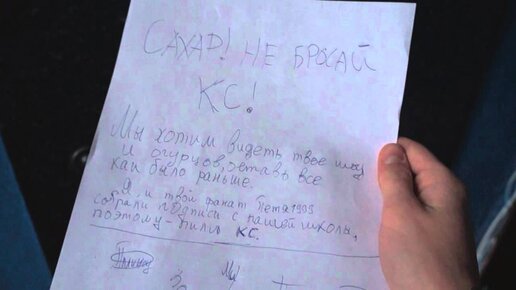 САХАР! НЕ БРОСАЙ
КС!
Мы хотим видеть твое шоу
и огурцов, оставь все
как было раньше.
Я и твой фанат Петя1999
собрали подписи с нашей школы,
поэтому - пили КС.
Мы